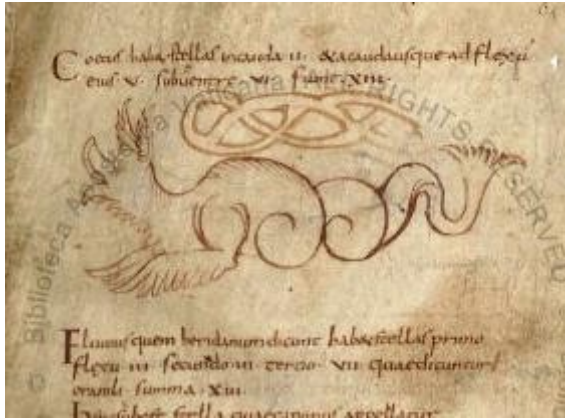 Coetus habet stellas in cauda II. & a cauda usque ad flexū
eius V. sub uentre VI. fiunt XIII.
Fluuius quem heridanum dicunt habet stellas primo
flexu III secundo III tercio VII quae dicuntur
oraculi summa XIII
stella quae appellatur
© Biblioteca Apostolica Vaticana ALL RIGHTS RESERVED